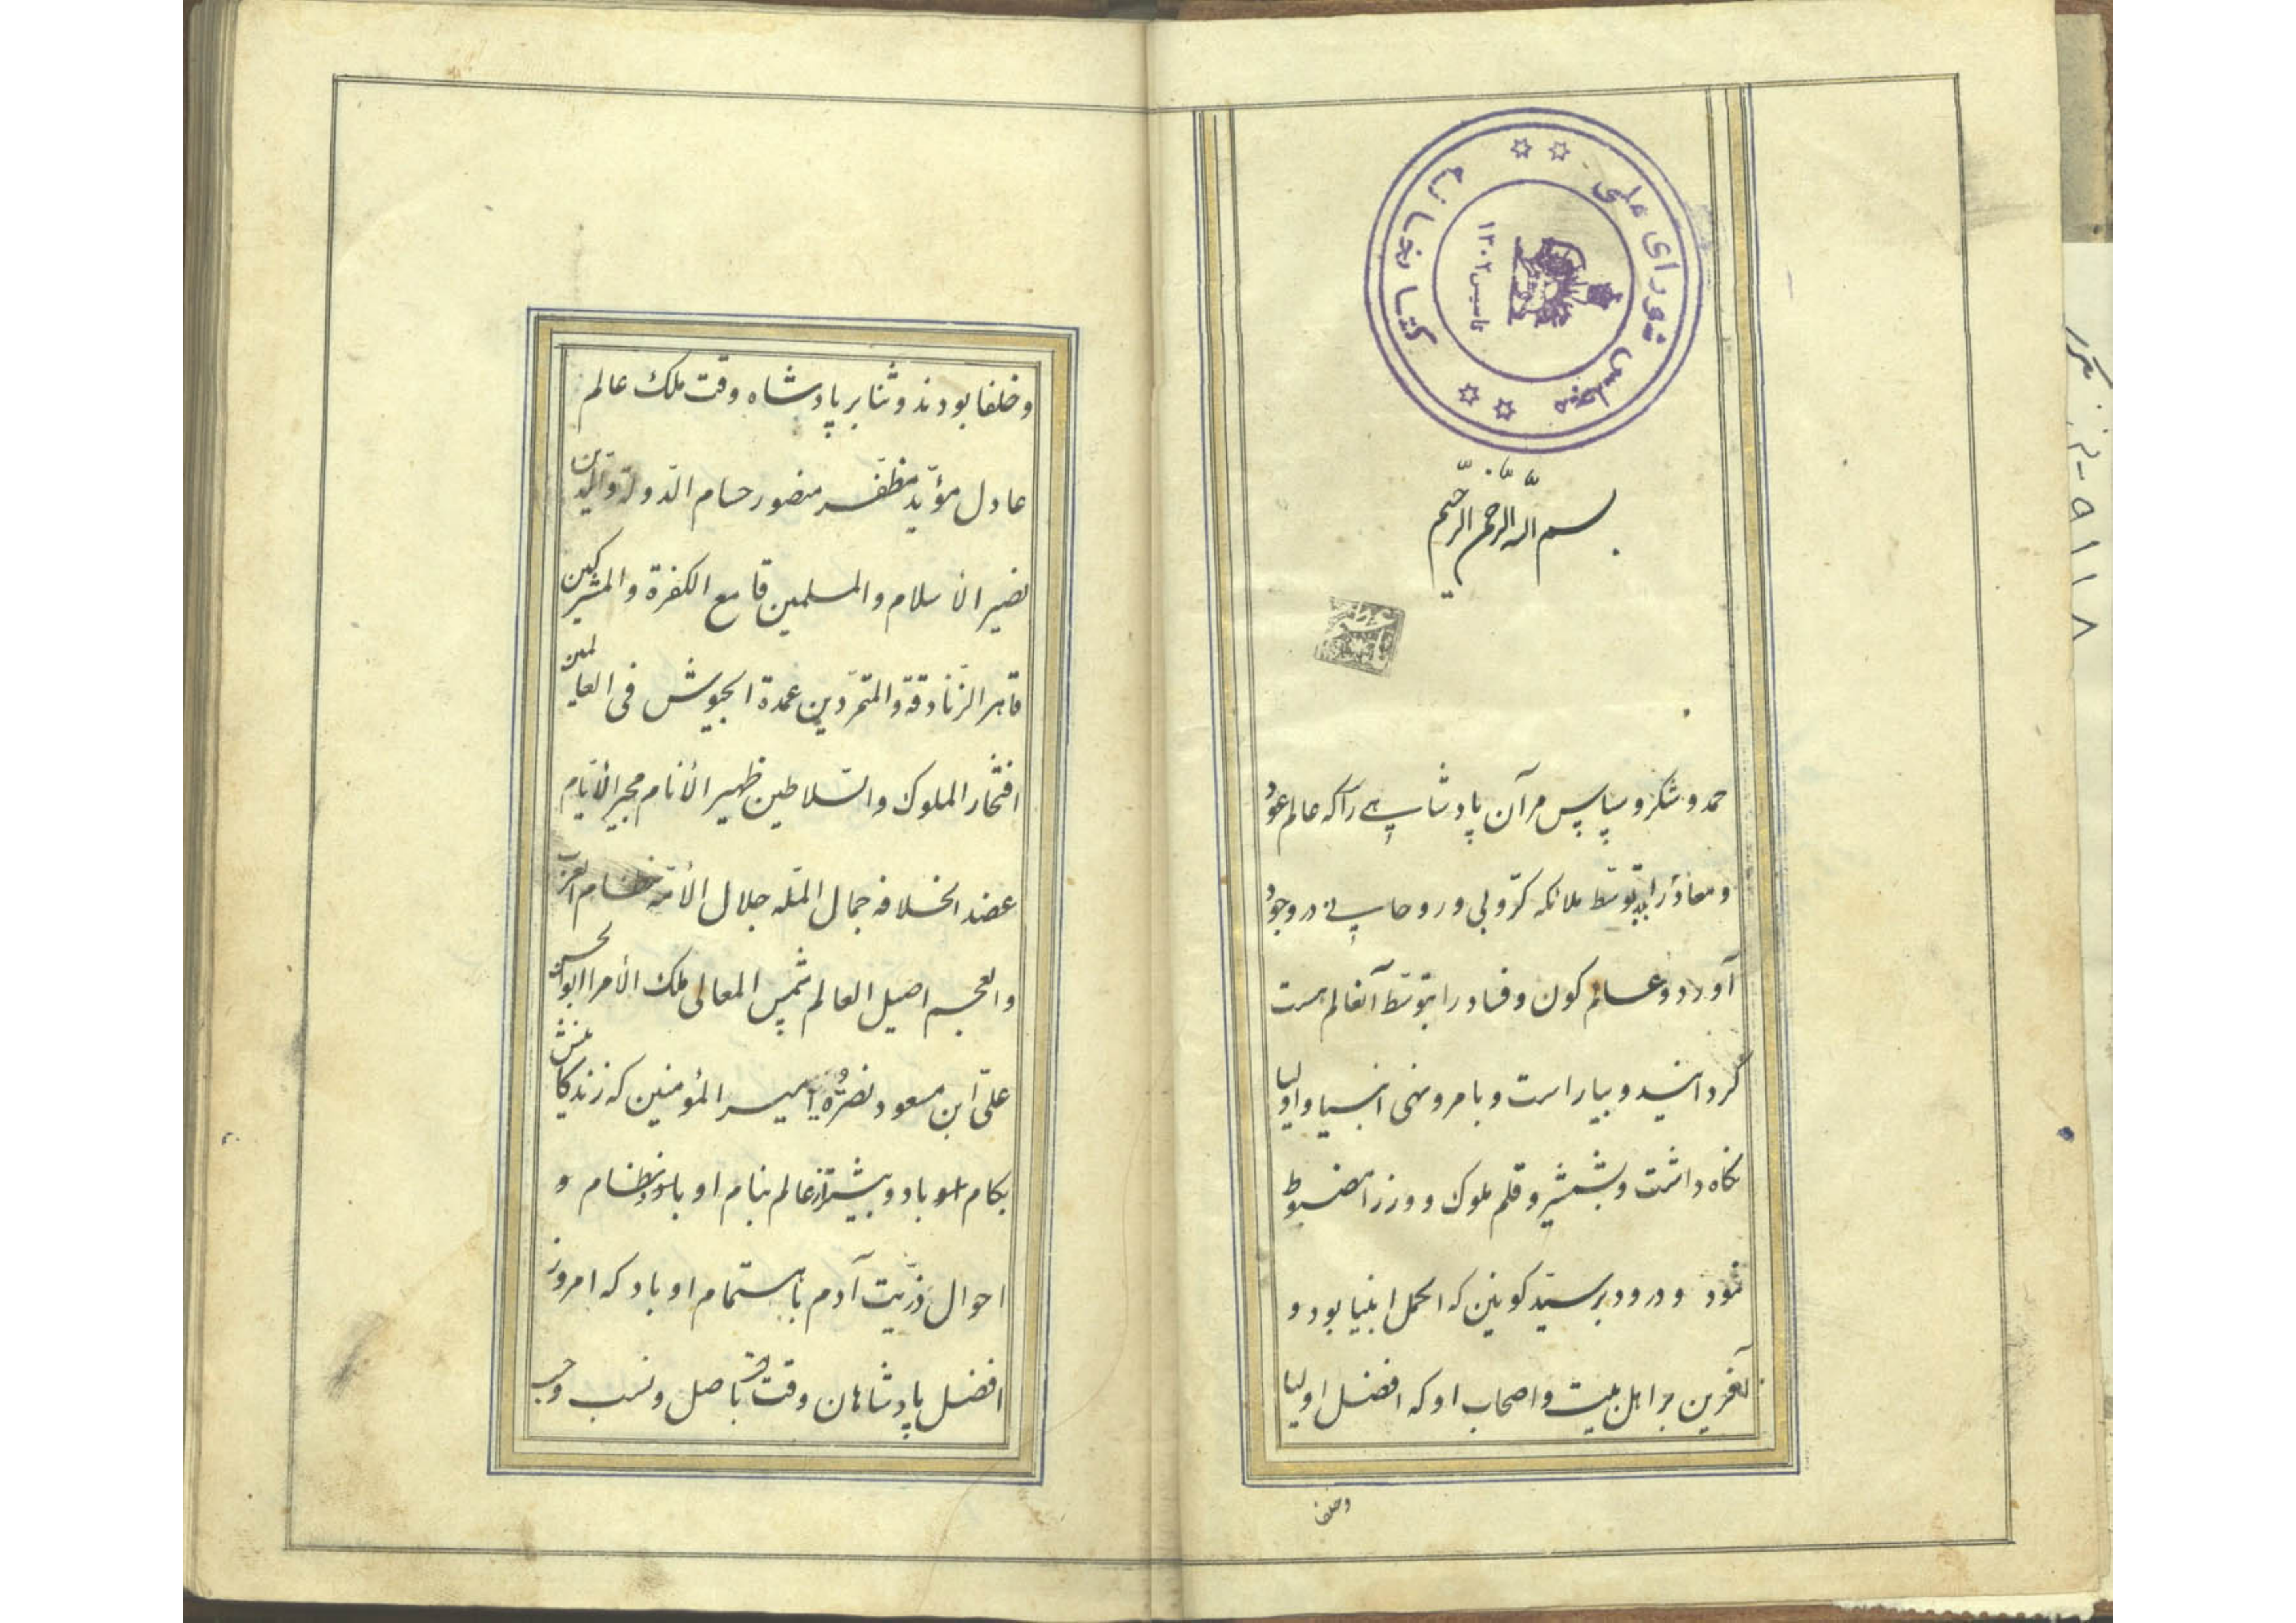 کتابخانه مجلس شورای ملی
تاسیس ۱۳۰۲
بسم الله الرحمن الرحیم
حمد و شکر و سپاس مر آن پادشاهی را که عالم عود
و معاد را بتوسّط ملائکه کرّوبی و روحانی در وجود
آورد و عالم کون و فساد را بتوسّط آنعالم هست
گردانید و بیاراست و بامر و نهی انبیا و اولیا
نگاه داشت و بشمشیر و قلم ملوک و وزرا مضبوط
نمود و درود بر سیّد کونین که اکمل انبیا بود و
آفرین بر اهل بیت و اصحاب او که افضل اولیا
وخلفا
و خلفا بودند و ثنا بر پادشاه وقت ملک عالم
عادل مؤیّد مظفّر منصور حسام الدّولة و الدّین
نصیر الأسلام و المسلمین قامع الکفرة و المشرکین
قاهر الزّنادقة و المتمرّدین عمدة الجیوش فی العالمین
افتخار الملوک و السّلاطین ظهیر الأنام مجیر الأیّام
عضد الخلافه جمال الملّه جلال الأمّه نظام العرب
و العجم اصیل العالم شمس المعالی ملک الأمرا ابو الحسن
علیّ ابن مسعود نصرة امیر المؤمنین که زندگانیش
بکام او باد و بیشتر از عالم بنام او باد و نظام و
احوال ذرّیت آدم باهتمام او باد که امروز
افضل پادشاهان وقت باصل و نسب و حسب
۹۱۱۸